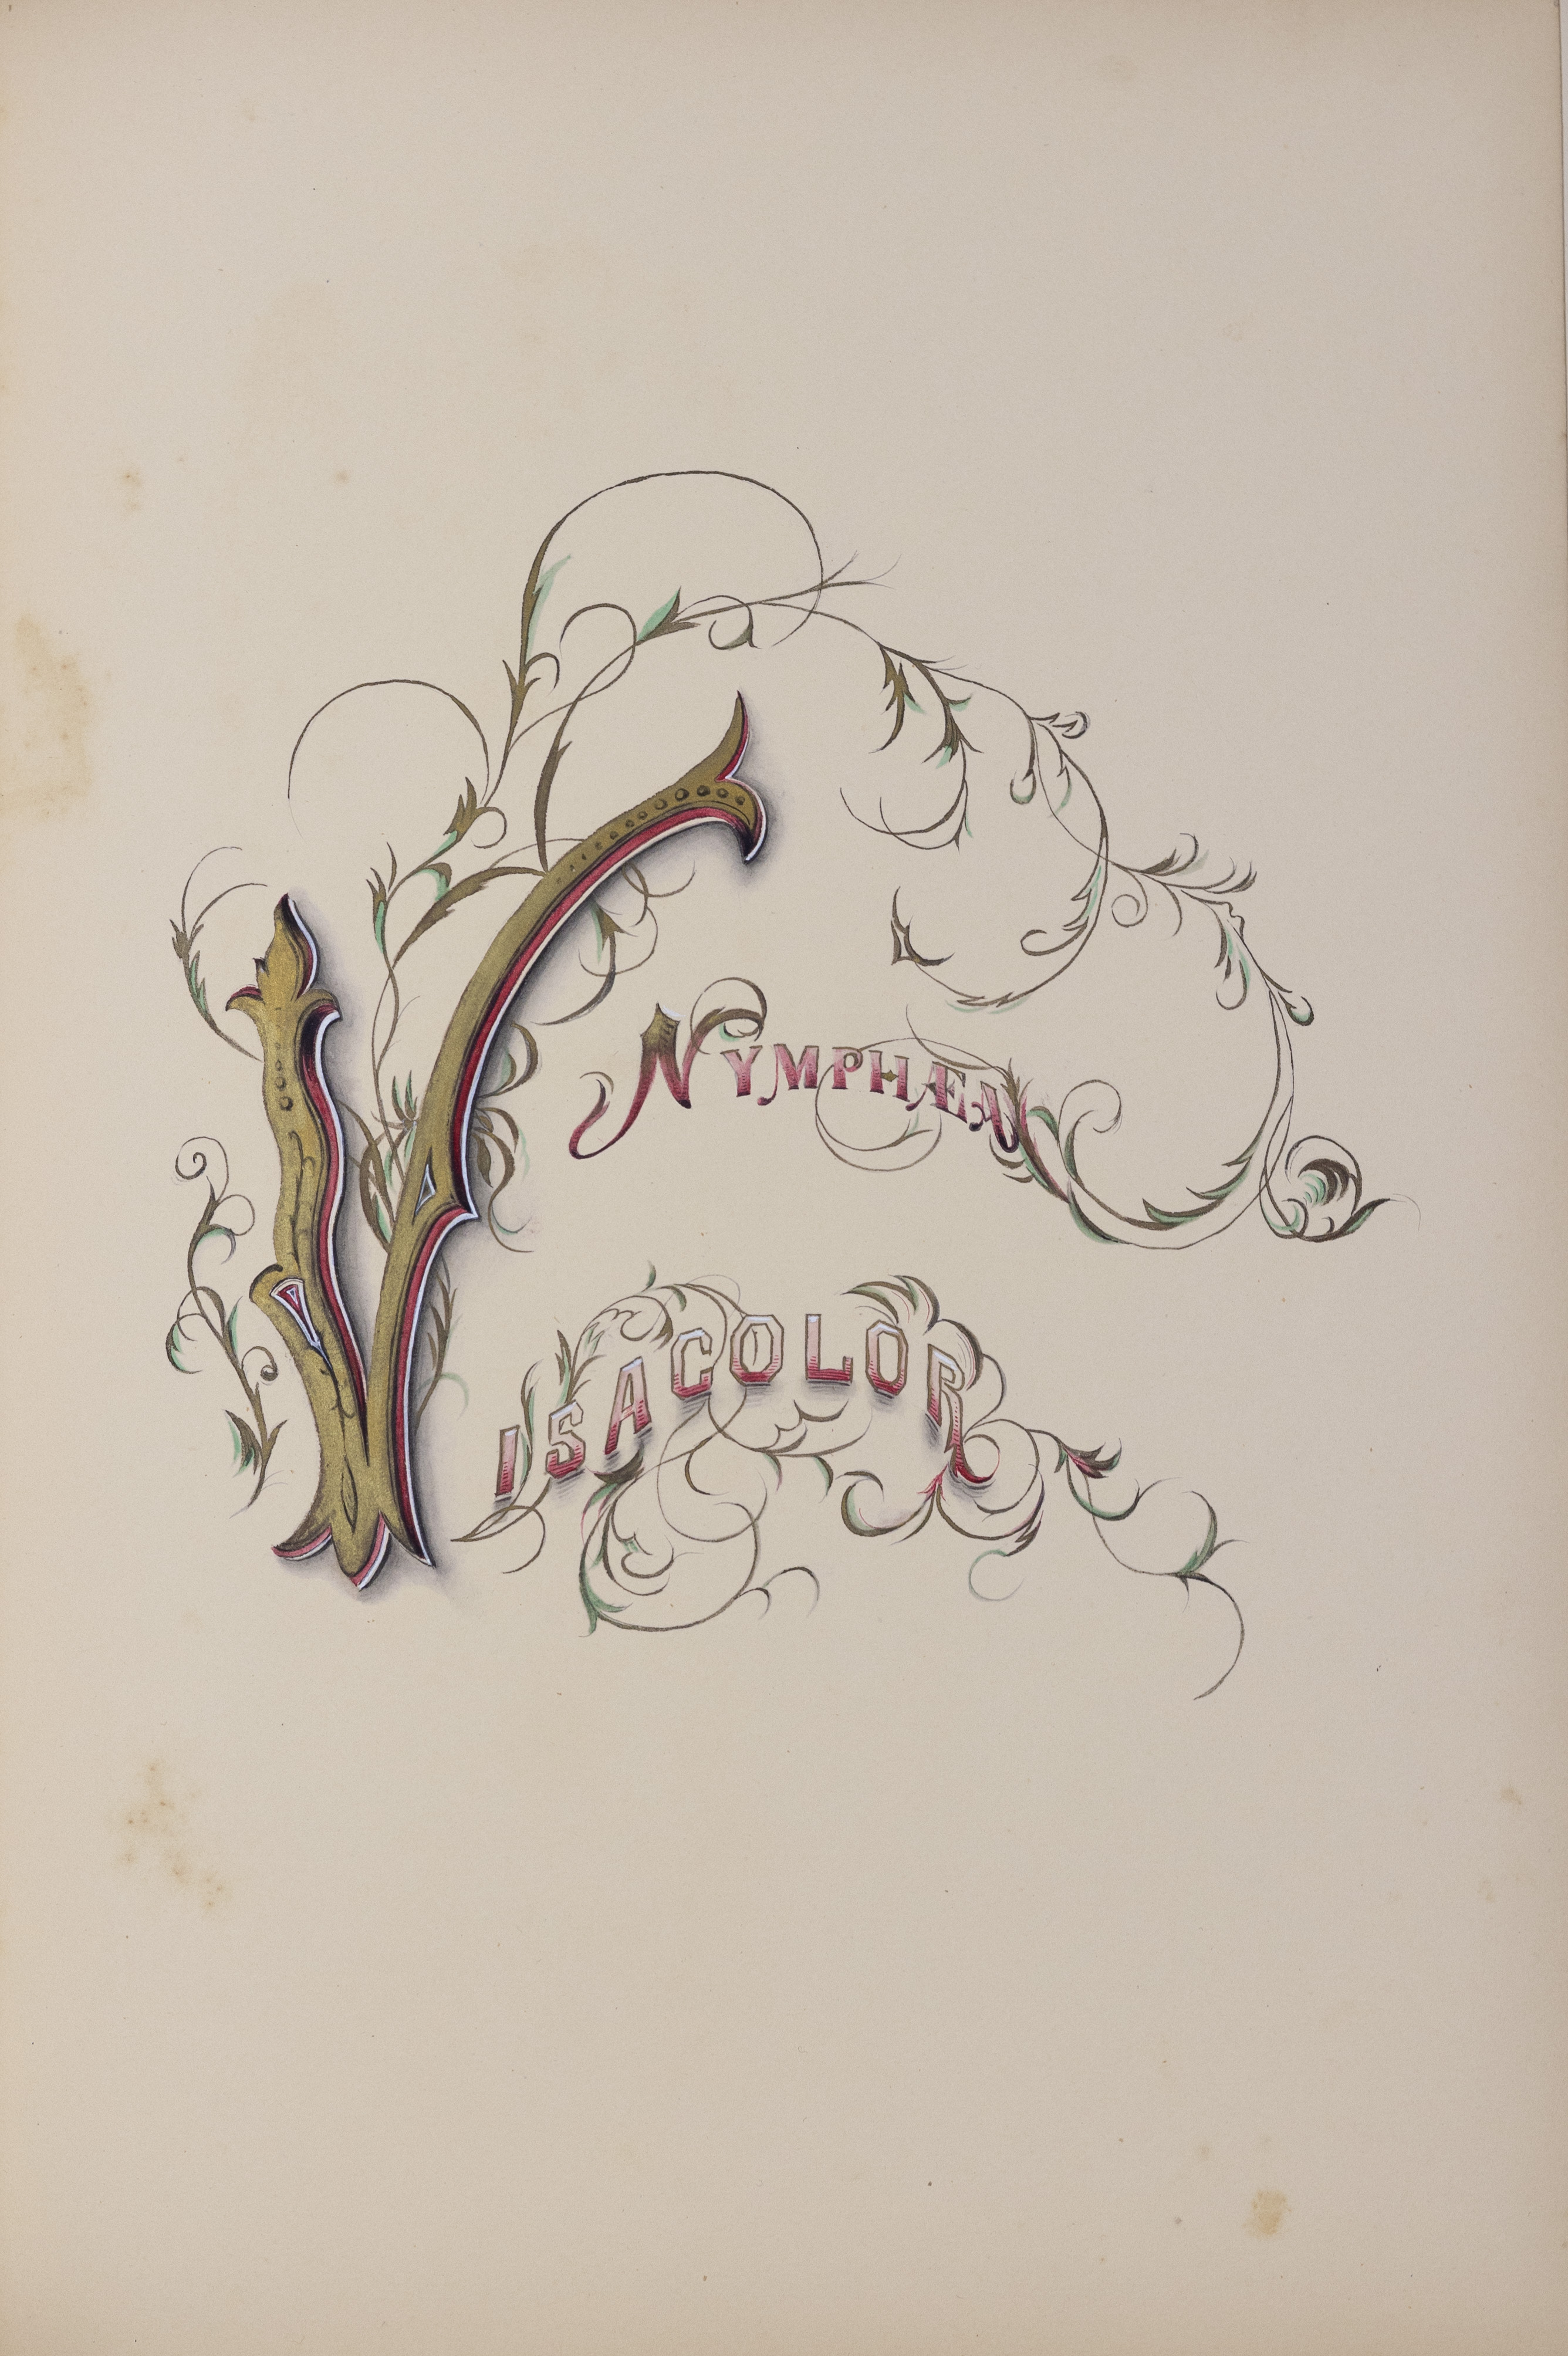 NYMPHÆA
VISACOLOR